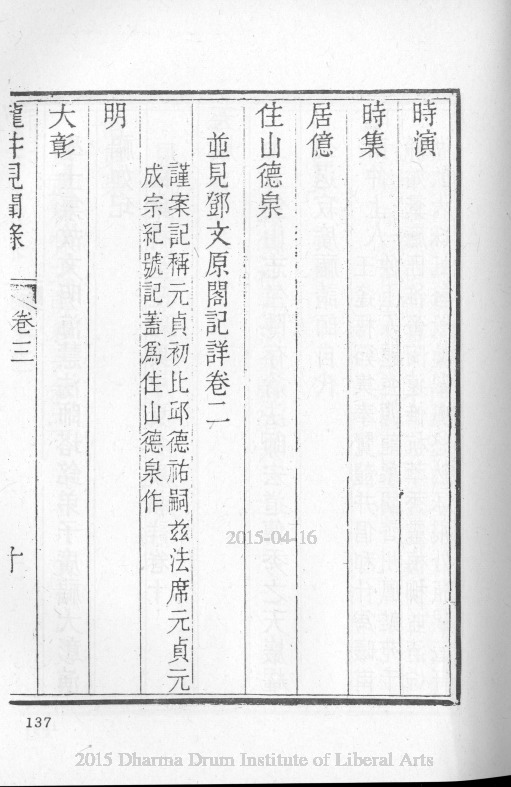 時演
時集
居億
住山德泉
並見鄧文原閣記詳卷二
謹案記稱元貞初比邱德祐嗣兹法席元貞元
成宗紀號記蓋爲住山德泉作
明
大彰
龍井見聞錄
卷三
十
137
2015-04-16
2015 Dharma Drum Institute of Liberal Arts